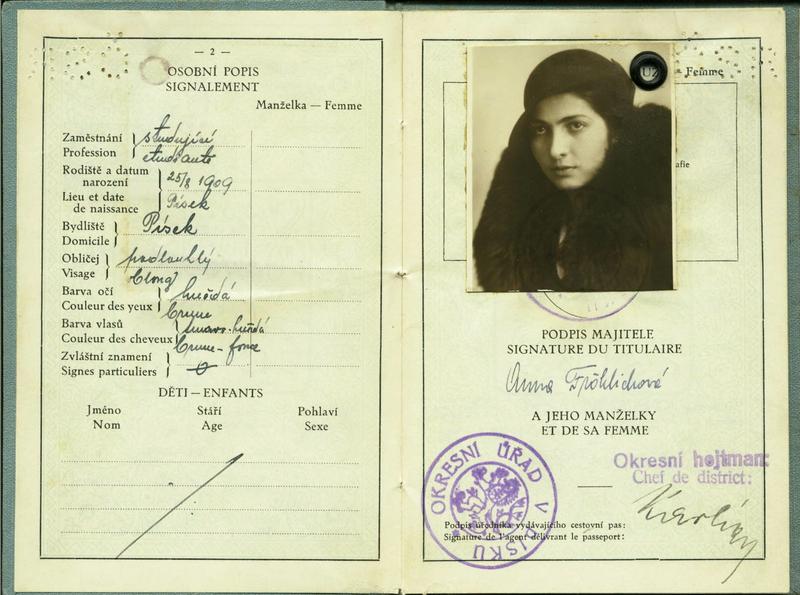 — 2 —
OSOBNÍ POPIS
SIGNALEMENT
Manželka — Femme
Zaměstnání studující
Profession étudiante
Rodiště a datum
narození 25/8 1909
Lieu et date
de naissance Písek
Bydliště Písek
Domicile
Obličej podlouhlý
Visage oblong
Barva očí hnědá
Couleur des yeux brune
Barva vlasů tmavo-hnědá
Couleur des cheveux brune-foncé
Zvláštní znamení
Signes particuliers
DĚTI — ENFANTS
Jméno Stáří Pohlaví
Nom Age Sexe
UŽ
— Femme
afie
PODPIS MAJITELE
SIGNATURE DU TITULAIRE
Anna Fröhlichová
A JEHO MANŽELKY
ET DE SA FEMME
OKRESNÍ ÚŘAD V PÍSKU
Okresní hejtman:
Chef de district:
Podpis úředníka vydávajícího cestovní pas:
Signature de l'agent délivrant le passeport: